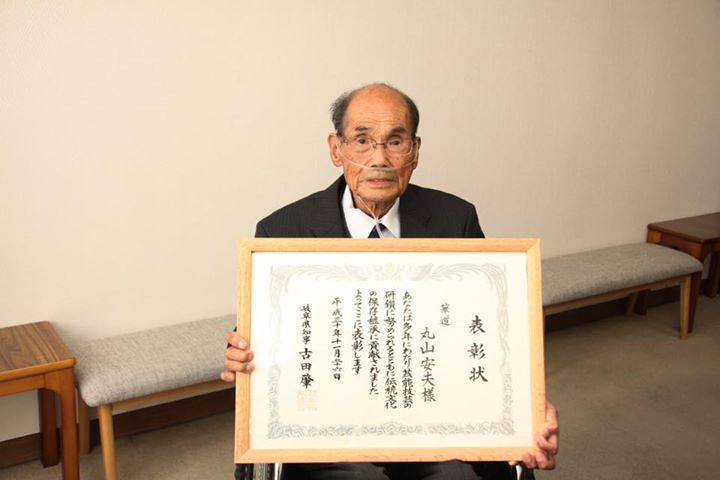 表彰状
華道
丸山安夫様
あなたは多年にわたり芸能技芸の
研鑽に努められるとともに伝統文化
の保存継承に貢献されました
よってここに表彰します
平成三十年十一月二十六日
岐阜県知事 古田肇